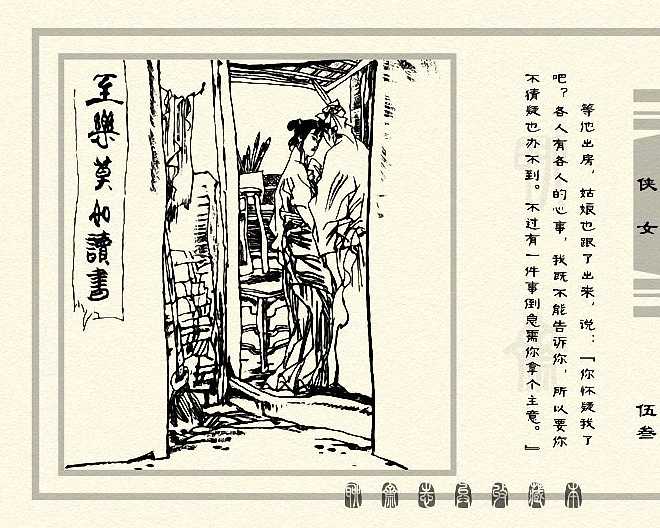 侠女
伍叁
等他出房，姑娘也跟了出来，说：「你怀疑我了
吧？各人有各人的心事，我既不能告诉你，所以要你
不猜疑也办不到。不过有一件事倒急需你拿个主意。」
至樂莫如讀書